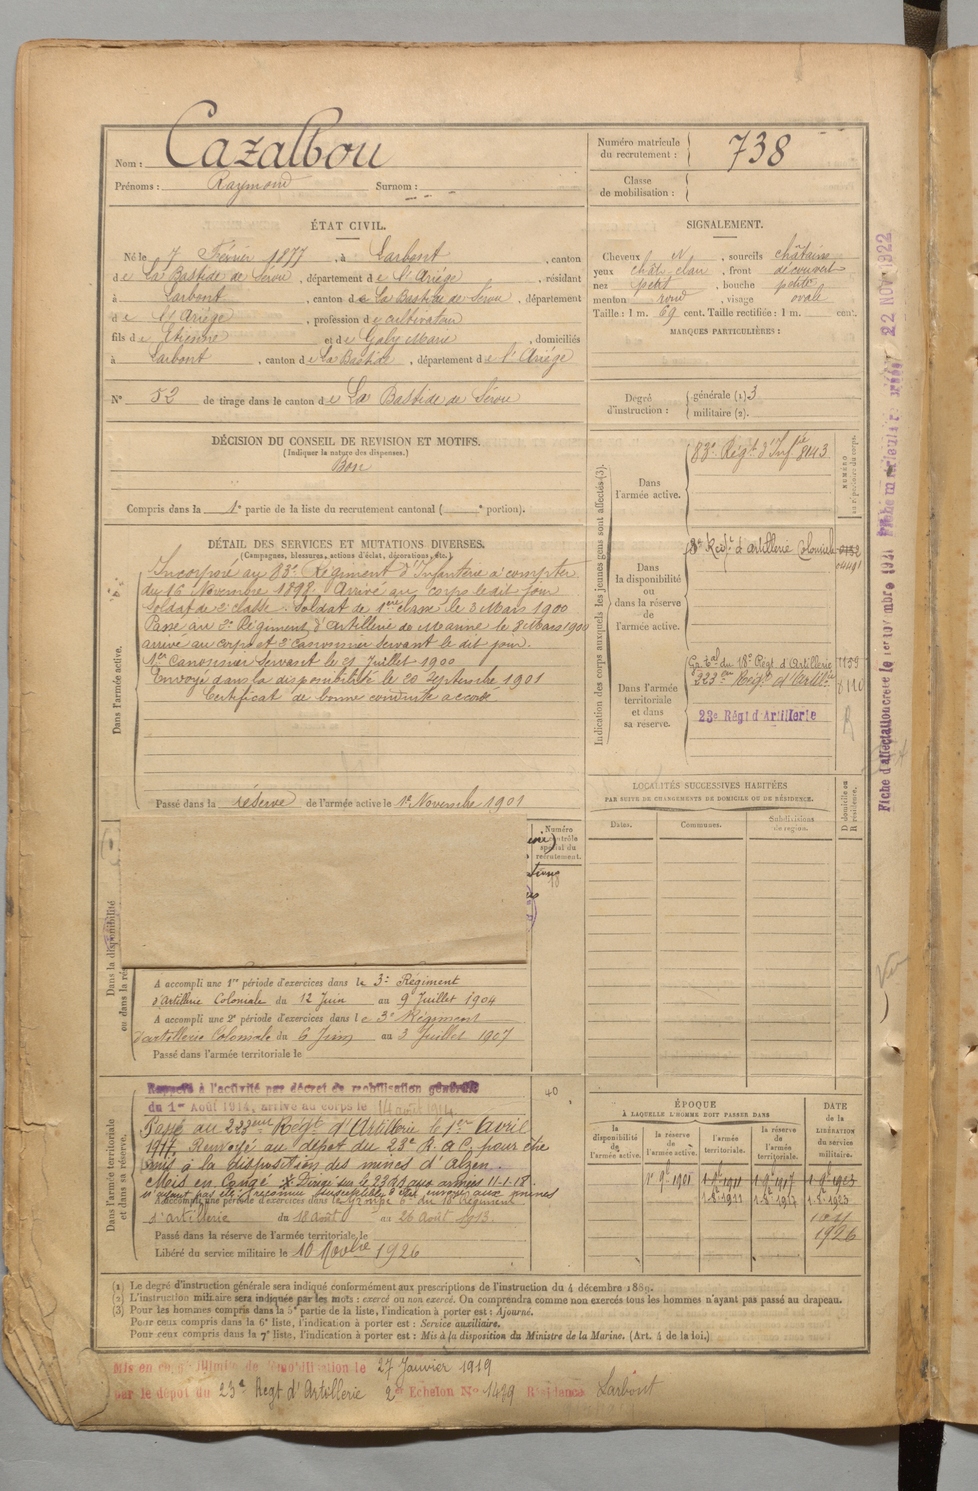 Nom : Cazalbou
Prénoms : Raymond Surnom :
Numéro matricule du recrutement : 738
Classe de mobilisation :
ÉTAT CIVIL.
Né le 7 Février 1877, à Larbont, canton
de La Bastide de Sérou, département de l'Ariège, résidant
à Larbont, canton de La Bastide de Sérou, département
de l'Ariège, profession de cultivateur
fils de Etienne et de Galy Marie, domiciliés
à Larbont, canton de La Bastide, département de l'Ariège
N° 52 de tirage dans le canton de La Bastide de Sérou
SIGNALEMENT.
Cheveux N, sourcils châtains
yeux chât. clair, front découvert
nez petit, bouche petite
menton rond, visage ovale
Taille : 1 m. 69 cent. Taille rectifiée : 1 m. cent.
MARQUES PARTICULIÈRES :
Degré d'instruction : générale (1) 3
militaire (2).
DÉCISION DU CONSEIL DE REVISION ET MOTIFS.
(Indiquer la nature des dispenses.)
Bon
Compris dans la 1e partie de la liste du recrutement cantonal ( e portion).
DÉTAIL DES SERVICES ET MUTATIONS DIVERSES.
(Campagnes, blessures, actions d'éclat, décorations, etc.)
Dans l'armée active.
Incorporé au 83e Régiment d'Infanterie à compter
du 16 Novembre 1898. Arrivé au corps le dit jour
Soldat de 2e classe. Soldat de 1ère classe le 3 Mars 1900
Passé au 3e Régiment d'Artillerie de Marine le 8 Mars 1900
arrivé au corps et 2e canonnier servant le dit jour.
1er Canonnier Servant le 21 Juillet 1900
Envoyé dans la disponibilité le 20 Septembre 1901
Certificat de bonne conduite accordé
Passé dans la réserve de l'armée active le 1er Novembre 1901
Indication des corps auxquels les jeunes gens sont affectés (3).
NUMÉRO au répertoire du corps.
Dans l'armée active.
83e Régt d'Infie 8143
Dans la disponibilité ou dans la réserve de l'armée active.
3e Régt d'artillerie Coloniale
Dans l'armée territoriale et dans sa réserve.
Gpe tal du 18e Régt d'Artillerie 1139
223eme Régt d'Artillie
23e Régt d'Artillerie
R
LOCALITÉS SUCCESSIVES HABITÉES
PAR SUITE DE CHANGEMENTS DE DOMICILE OU DE RÉSIDENCE.
Dates. Communes. Subdivisions de région. D domicile ou R résidence.
Numéro au contrôle spécial du recrutement.
Dans la disponibilité
A accompli une 1re période d'exercices dans le 3e Régiment
d'Artillerie Coloniale du 12 Juin au 9 Juillet 1904
A accompli une 2e période d'exercices dans le 3e Régiment
d'artillerie Coloniale du 6 Juin au 3 Juillet 1907
Passé dans l'armée territoriale le
Dans l'armée territoriale et dans sa réserve.
Rappelé à l'activité par décret de mobilisation générale 40
du 1er Août 1914, arrivé au corps le 14 août 1914.
Passé au 223eme Régt d'Artillerie le 1er avril
1917. Renvoyé au dépot du 23e R.A.C. pour être
mis à la disposition des mines d'Alzen.
Mis en Congé. Dirigé sur le 23 RA aux armées 11-1-18.
A accompli une période d'exercices dans le Groupe du 18e régiment
d'artillerie du 18 août au 26 août 1913.
Passé dans la réserve de l'armée territoriale le
Libéré du service militaire le 10 Novbre 1926
ÉPOQUE
À LAQUELLE L'HOMME DOIT PASSER DANS
la disponibilité de l'armée active. la réserve de l'armée active. l'armée territoriale. la réserve de l'armée territoriale.
DATE de la LIBÉRATION du service militaire.
1er 9e 1901 1er 9e 1911 1er 9e 1917 1er 9e 1923
1926
(1) Le degré d'instruction générale sera indiqué conformément aux prescriptions de l'instruction du 4 décembre 1889.
(2) L'instruction militaire sera indiquée par les mots : exercé ou non exercé. On comprendra comme non exercés tous les hommes n'ayant pas passé au drapeau.
(3) Pour les hommes compris dans la 5e partie de la liste, l'indication à porter est : Ajourné.
Pour ceux compris dans la 6e liste, l'indication à porter est : Service auxiliaire.
Pour ceux compris dans la 7e liste, l'indication à porter est : Mis à la disposition du Ministre de la Marine. (Art. 4 de la loi.)
Mis en congé illimité de démobilisation le 27 Janvier 1919
par le dépôt du 23e Régt d'Artillerie 2e Echelon No 1479 Résidence Larbont
22 NOV 1922